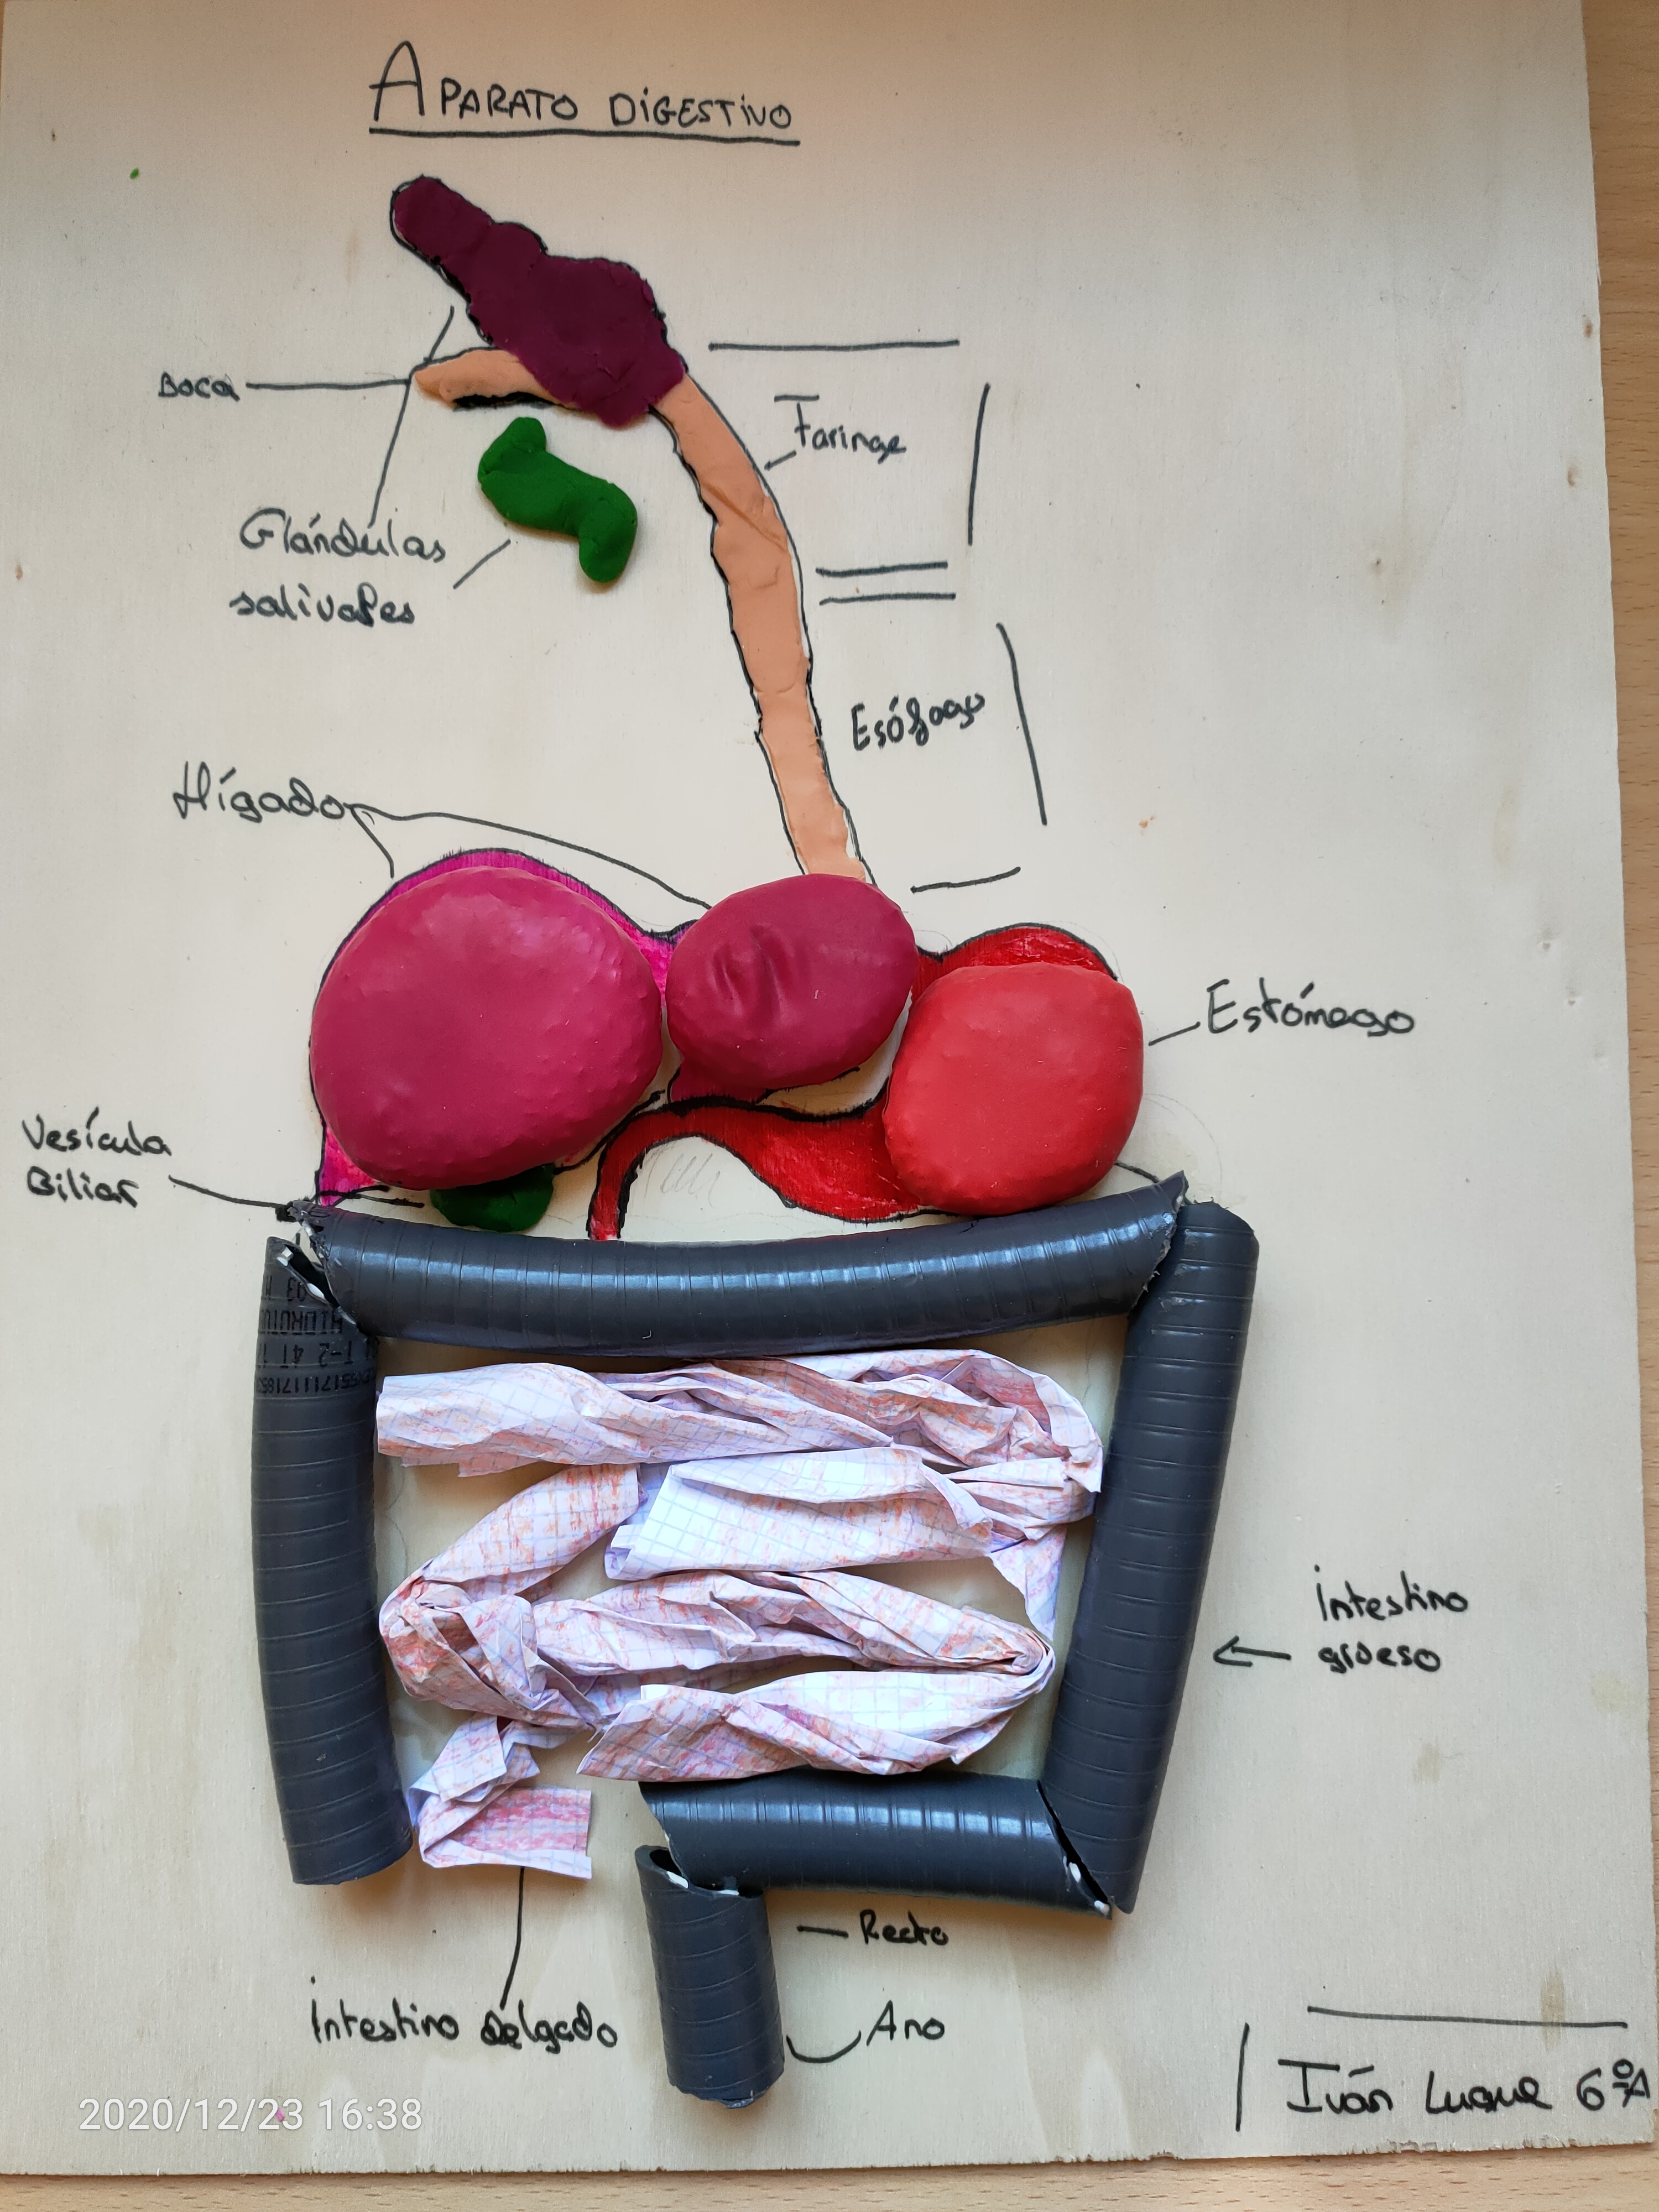 APARATO DIGESTIVO
Boca
Faringe
Glándulas
salivales
Esófago
Hígado
Estómago
Vesícula
Biliar
Intestino
grueso
Recto
Intestino delgado
Ano
Iván Luque 6ºA
2020/12/23 16:38